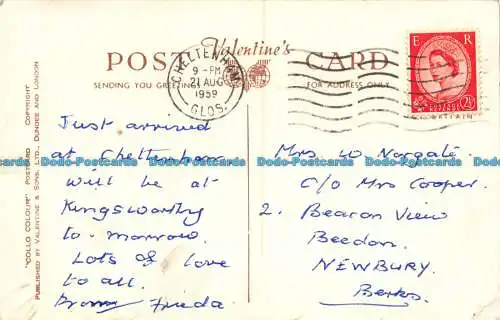 POST Valentine's CARD
SENDING YOU GREETINGS
FOR ADDRESS ONLY
CHELTENHAM
9 - PM
21 AUG
1959
GLOS.
E R
POSTAGE
2½
REVENUE
Just arrived
at Cheltenham
will be at
Kingsworthy
to-morrow.
Lots of love
to all.
From Frieda
Mrs W Norgate
C/O Mrs Cooper.
2. Beacon View
Beedon.
NEWBURY.
Berks.
"COLLO COLOUR" POSTCARD COPYRIGHT
PUBLISHED BY VALENTINE & SONS, LTD., DUNDEE AND LONDON
Dodo-Postcards Dodo-Postcards Dodo-Postcards Dodo-Postcards Dodo-Postcards